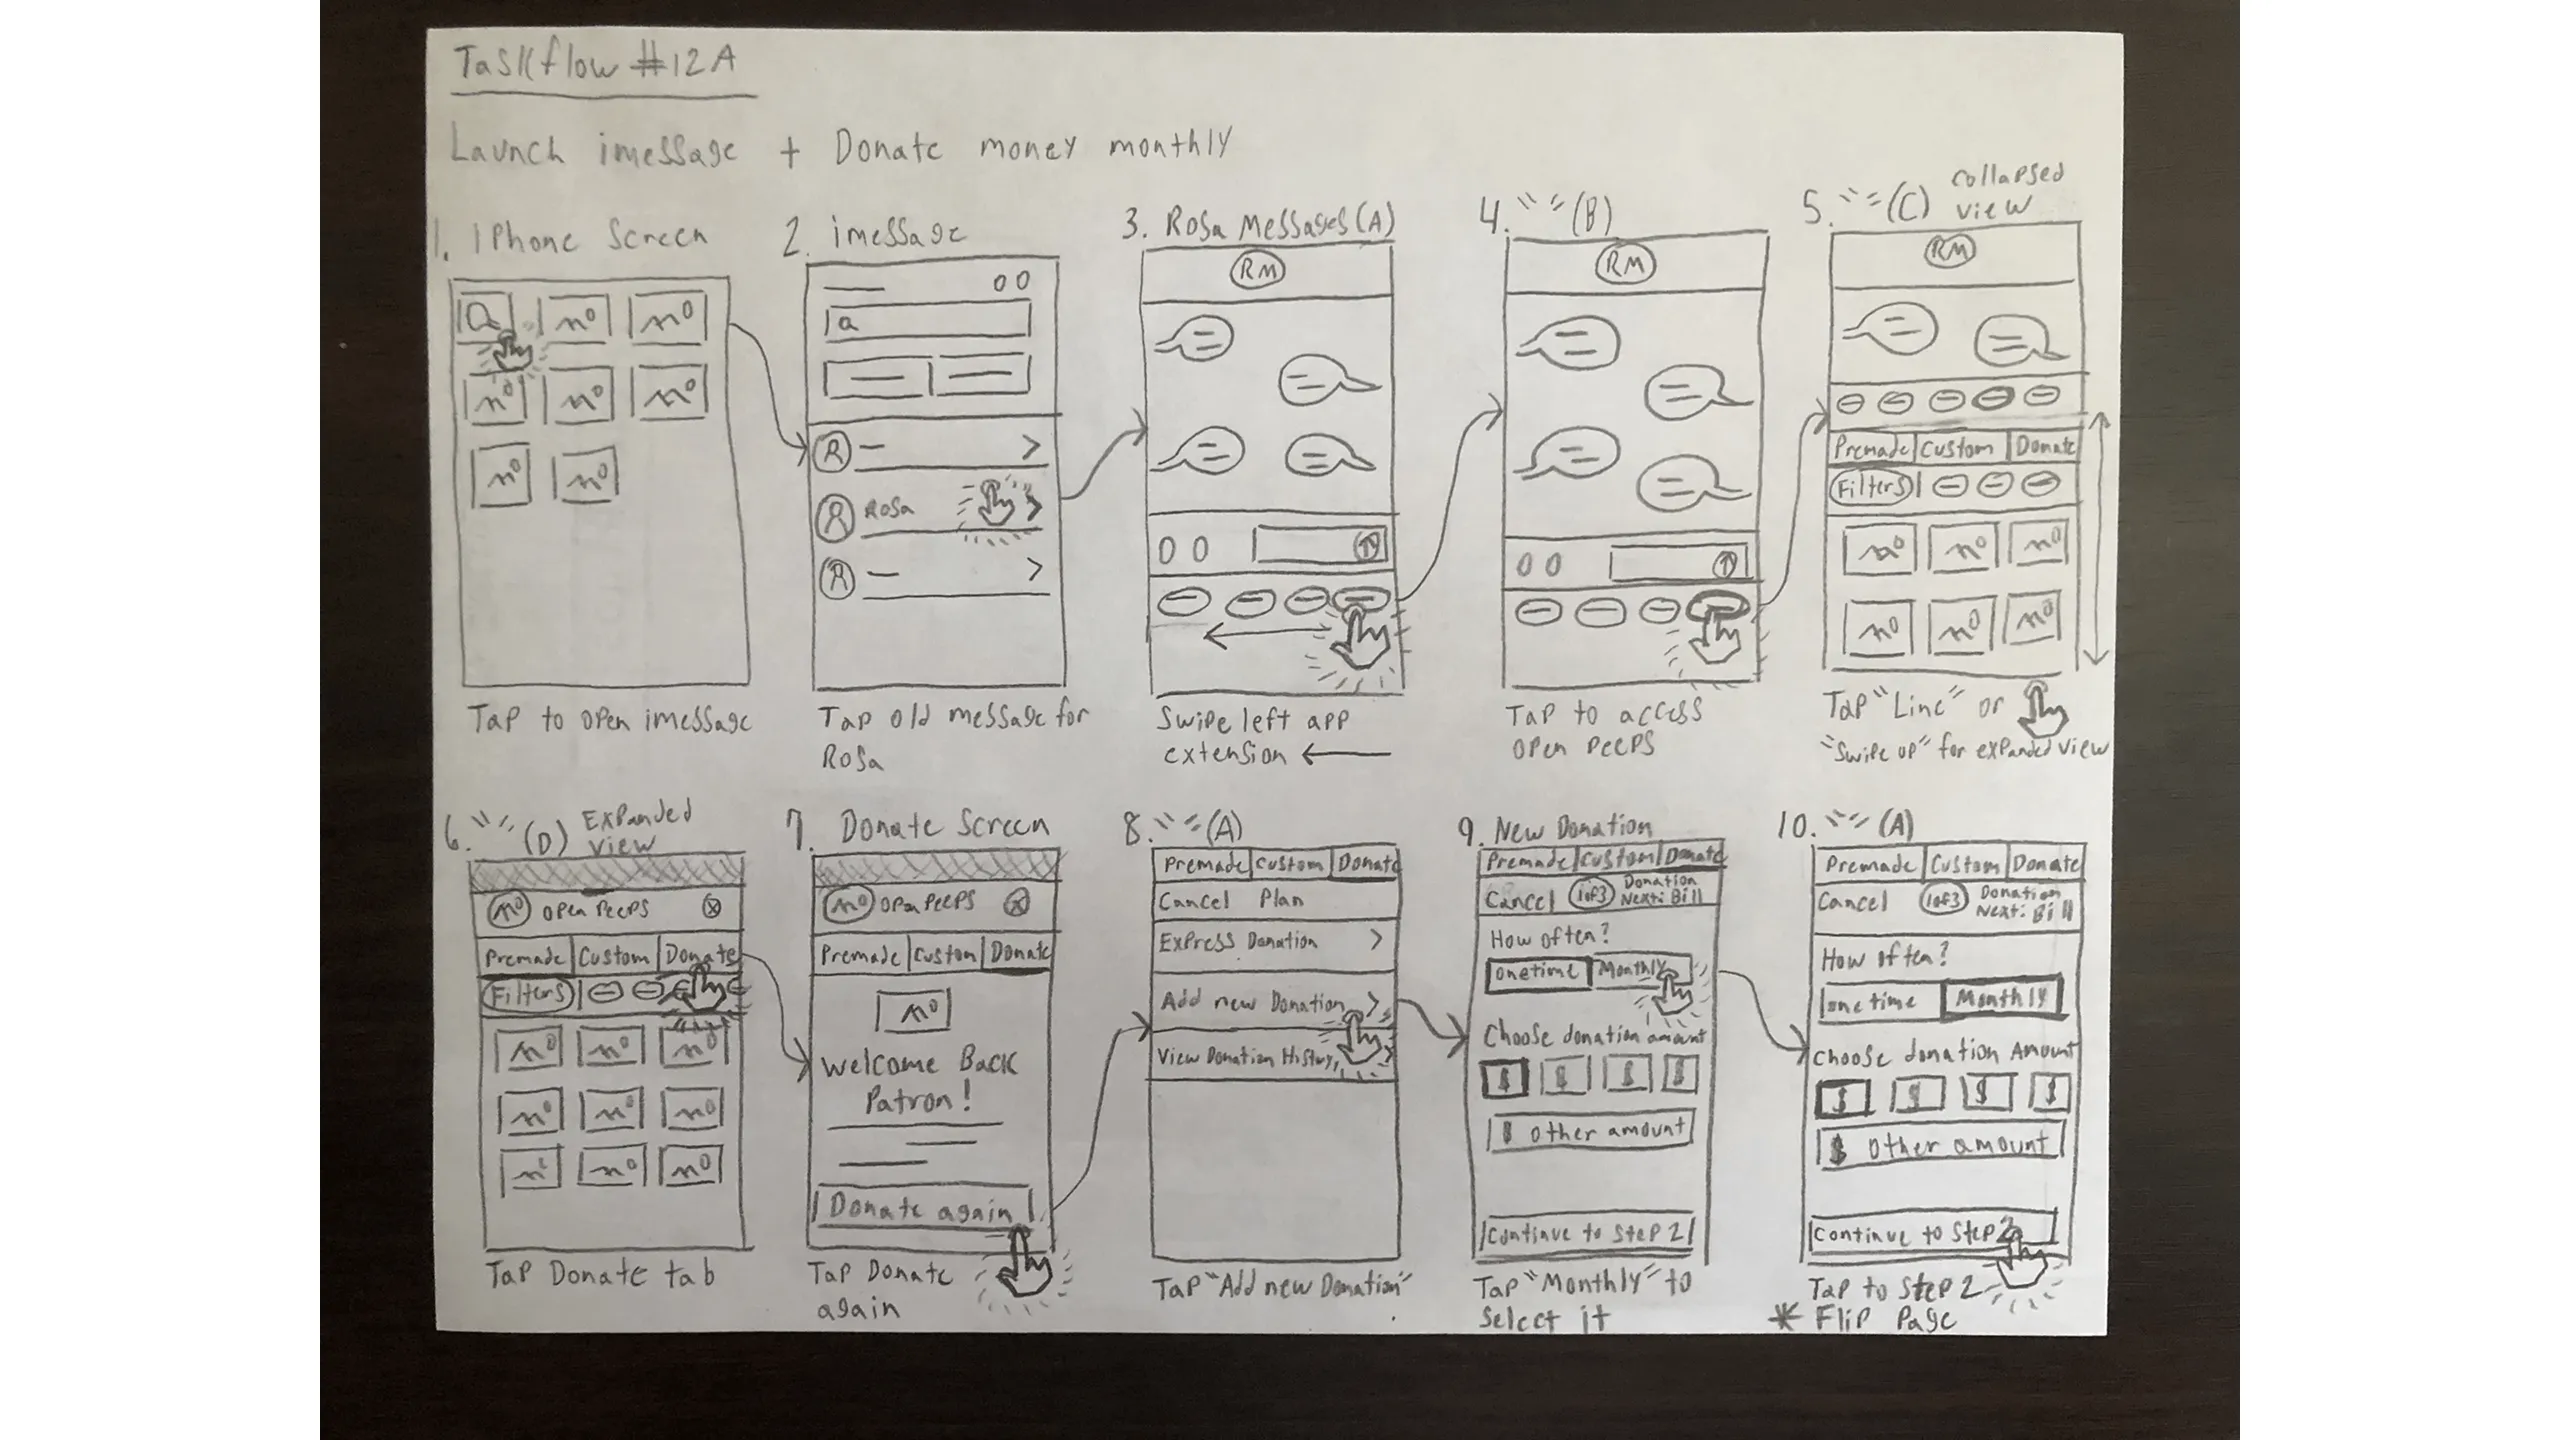 Taskflow #12A
Launch imessage + Donate money monthly
1. IPhone Screen
Tap to open imessage
2. imessage
Rosa
Tap old message for
Rosa
3. Rosa Messages (A)
RM
Swipe left app
extension ←
4. " " (B)
RM
Tap to access
open peeps
5. " " (C) collapsed
view
RM
Premade Custom Donate
Filters
Tap "Line" or
"Swipe up" for expanded view
6. " " (D) Expanded
view
open peeps
Premade Custom Donate
Filters
Tap Donate tab
7. Donate Screen
open peeps
Premade Custom Donate
Welcome Back
Patron!
Donate again
Tap Donate
again
8. " " (A)
Premade Custom Donate
Cancel Plan
Express Donation >
Add new Donation >
View Donation History
Tap "Add new Donation"
9. New Donation
Premade Custom Donate
Cancel 1 of 3 Donation
Next: Bill
How often?
onetime Monthly
Choose donation amount
$ $ $ $
$ other amount
Continue to Step 2
Tap "Monthly" to
Select it
10. " " (A)
Premade Custom Donate
Cancel 1 of 3 Donation
Next: Bill
How often?
one time Monthly
Choose donation Amount
$ $ $ $
$ other amount
Continue to Step 2
Tap to Step 2
* Flip Page